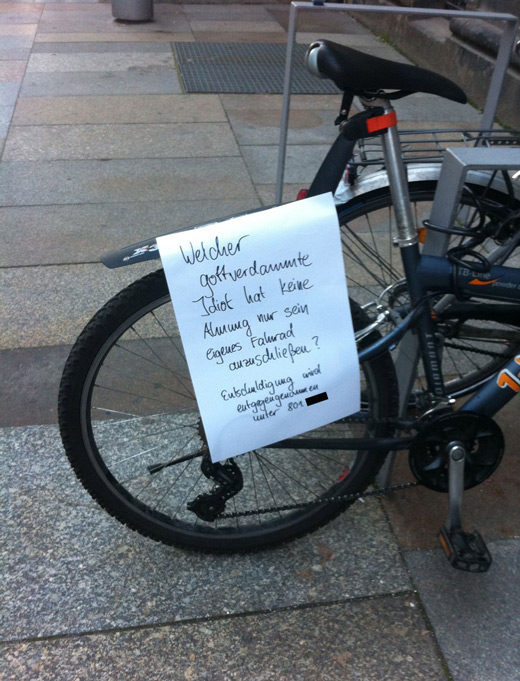 Welcher
gottverdammte
Idiot hat keine
Ahnung nur sein
eigenes Fahrrad
anzuschließen?
Entschuldigung wird
entgegengenommen
unter 801
TB-Line